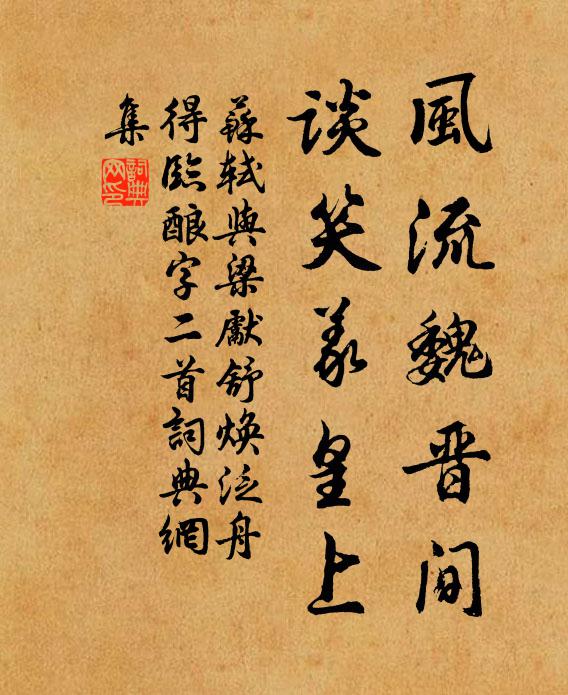 風流魏晋間
談笑羲皇上
蘇軾與梁獻舒煥泛舟
得臨酿字二首詞典網
集
詞典
网印